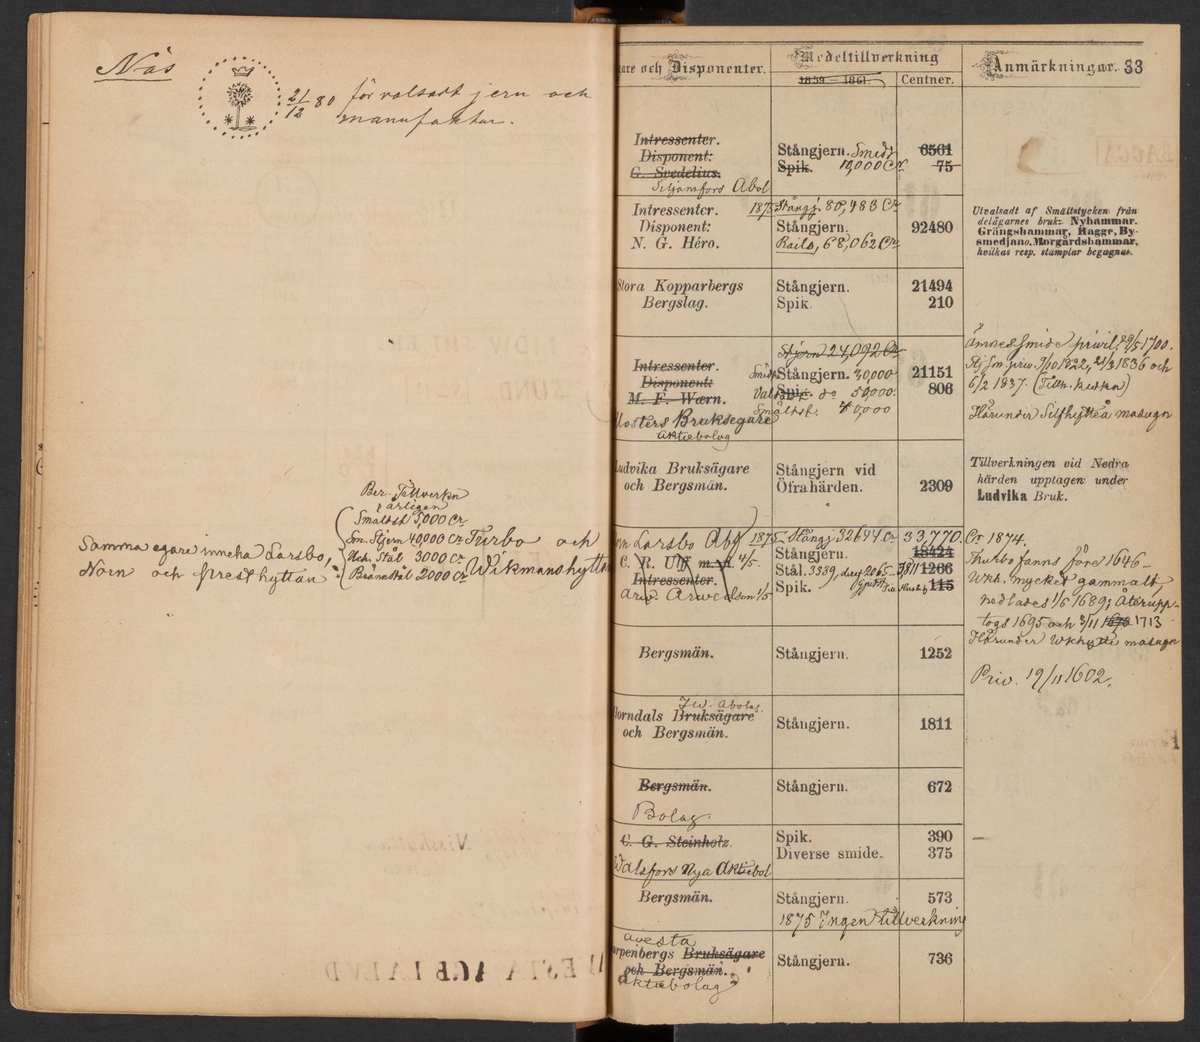 Näs
21/12 80 för valsadt jern och
manufaktur.
Ber. Tillverkn
årligen
Smältst 5,000 Cr.
Sm. Stjern 40,000 Cr
Uch. Stål 3000 Cr
Brännstål 2000 Cr
Turbo och
Wikmanshyttan
Samma egare inneha Larsbo,
Norn och Presthyttan
gare och Disponenter.
Medeltillverkning
1859 – 1861.
Centner.
Anmärkningar. 33
Intressenter.
Disponent:
G. Svedelius.
Siljansfors Abol
Stångjern. Smidt
6561
Spik. 10,000 Cr
75
Intressenter.
Disponent:
N. G. Héro.
1875 Stångj. 80,483 Cr
Stångjern.
92480
Rails, 68,062 Cr
Utvalsadt af Smältstycken från
delägarnes bruk: Nyhammar,
Grängshammar, Hagge, By-
smedjano, Morgårdshammar,
hvilkas resp. stämplar begagnas.
Stora Kopparbergs
Bergslag.
Stångjern.
21494
Spik.
210
Intressenter.
Disponent:
M. F. Wærn.
Klosters Bruksegare
Aktiebolag
Stjern 24,092 Cr
Smidt Stångjern. 30,000
21151
Vals Spik. do 50,000.
806
Smältst. 40,000
Ämnessmide privil. 29/5 1700.
Stj Sm. priv. 7/10 1822, 21/3 1836 och
6/2 1837. (Tillv. neskn)
Härunder Silfhytteå masugn
Ludvika Bruksägare
och Bergsmän.
Stångjern vid
Öfrahärden.
2309
Tillverkningen vid Nedra
härden upptagen under
Ludvika Bruk.
Larsbo Abg
C. R. Ulff m. fl. 4/5.
Intressenter.
Arv. Arwedson 1/5
1875 Stångj 32644 Cr 33,770.
Stångjern.
18424
Stål. 3339,
1266
Spik.
115
Cr 1874.
Thurbo fanns före 1646 –
Wkh. mycket gammalt,
nedlades 1/6 1689; Återupp-
togs 1695 och 3/11 1670 1713
Härunder Wkhytte masugn
Bergsmän.
Stångjern.
1252
Priv. 19/11 1602.
Horndals Bruksägare
Jw. Abolag.
och Bergsmän.
Stångjern.
1811
Bergsmän.
Bolag.
Stångjern.
672
C. G. Steinholz.
Walsfors Nya Aktiebol
Spik.
390
Diverse smide.
375
Bergsmän.
Stångjern.
573
1875 Ingen tillverkning
Avesta
Garpenbergs Bruksägare
och Bergsmän.
Aktiebolag
Stångjern.
736